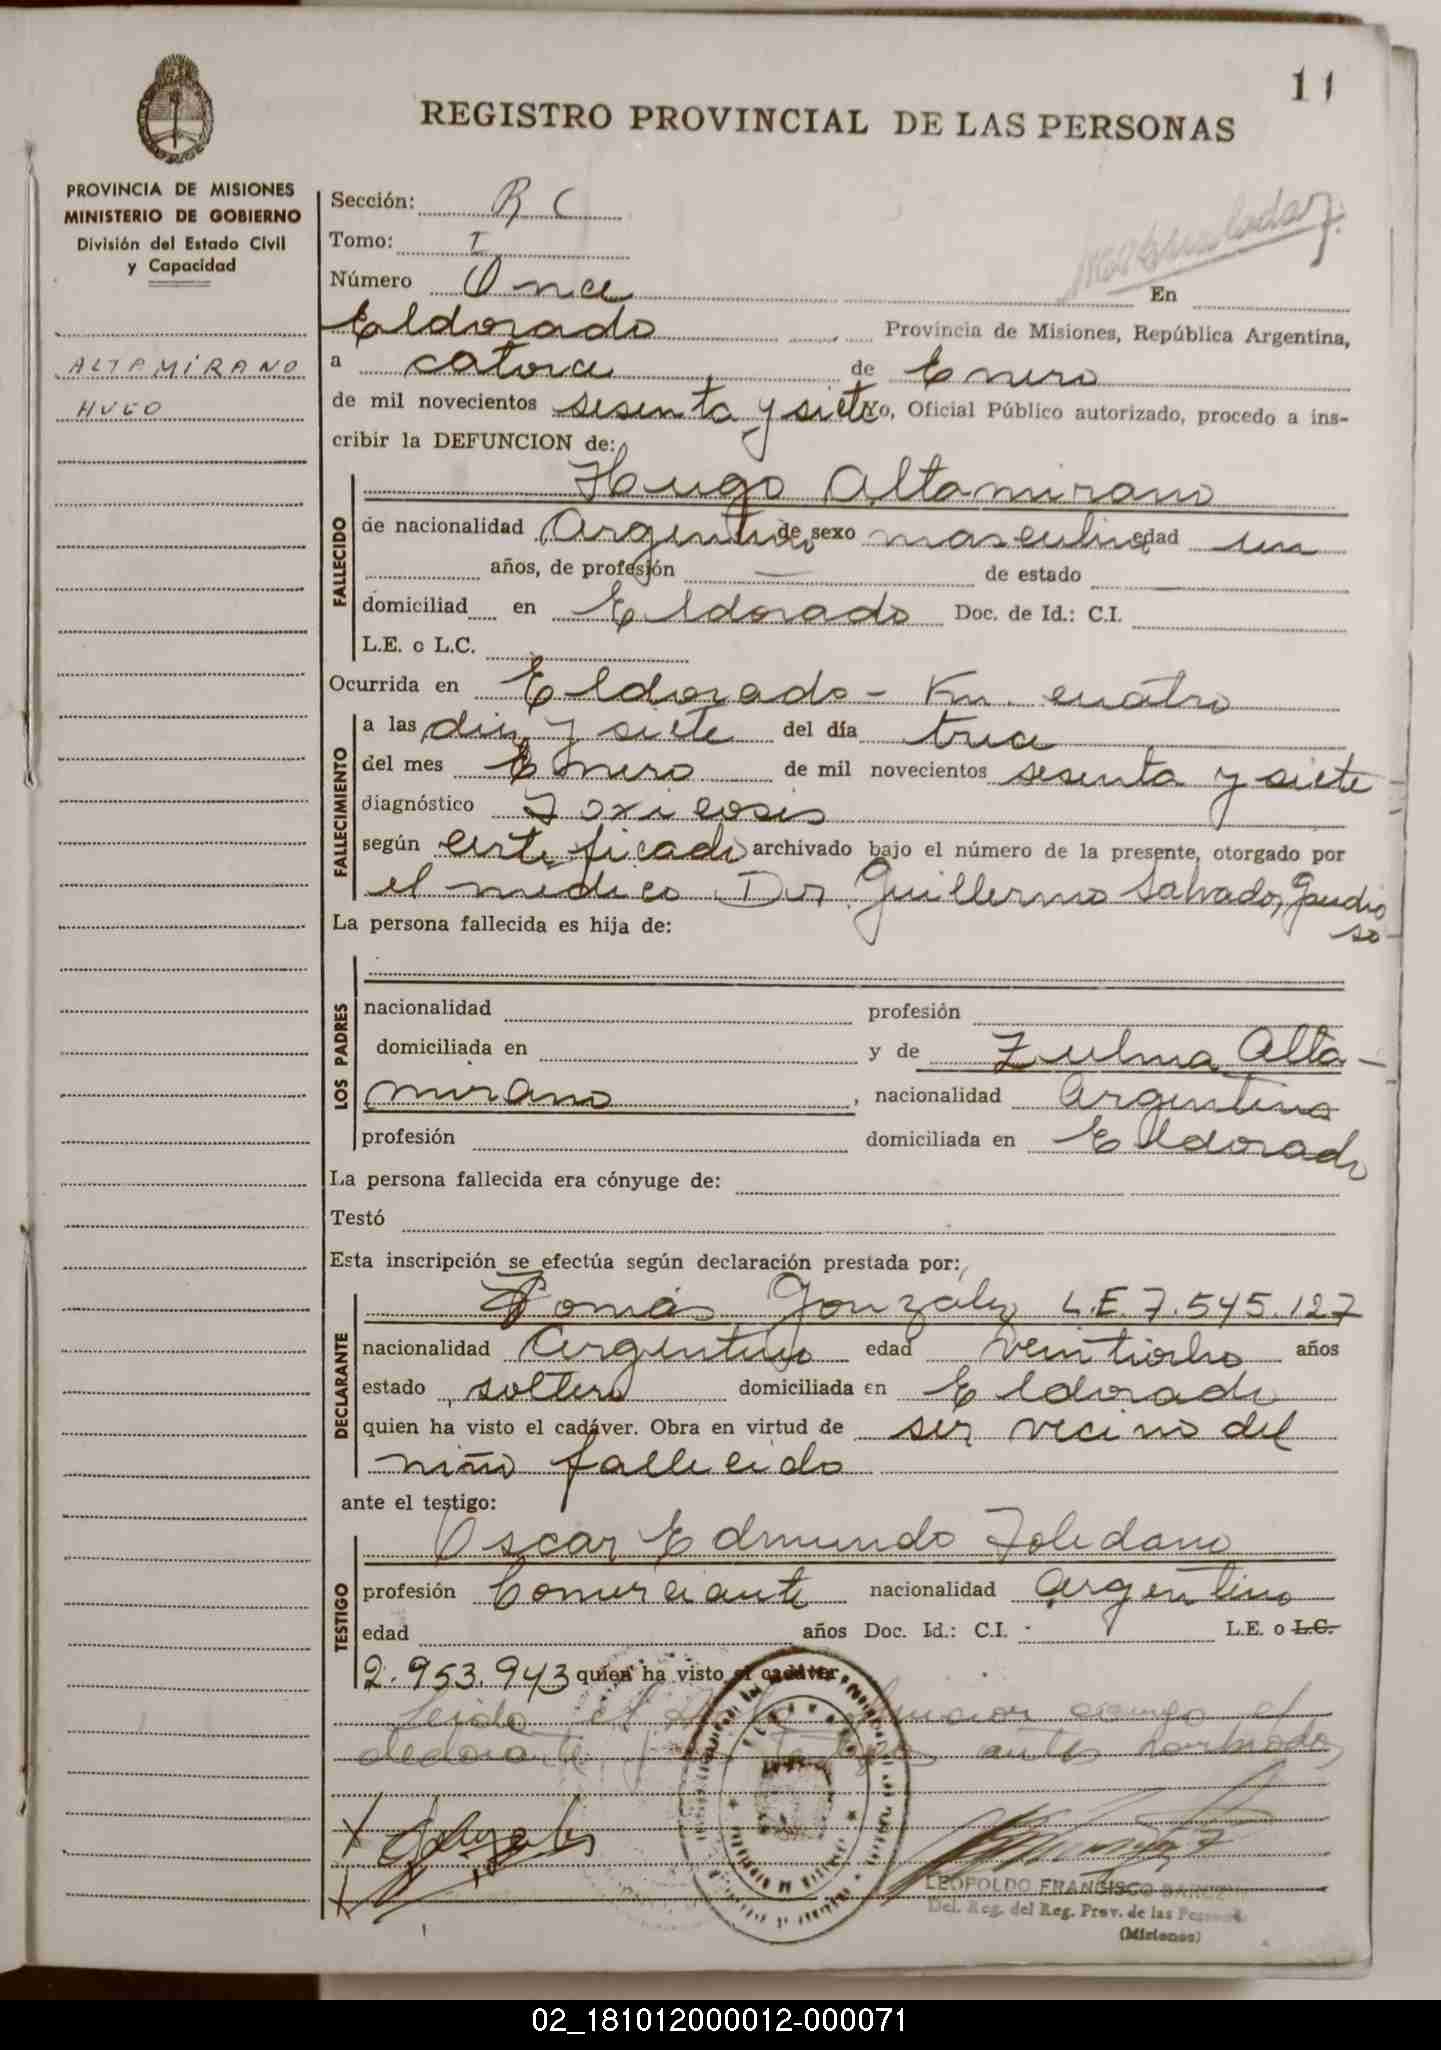 11
REGISTRO PROVINCIAL DE LAS PERSONAS
PROVINCIA DE MISIONES
MINISTERIO DE GOBIERNO
División del Estado Civil
y Capacidad
ALTAMIRANO
HUGO
Sección: R C
Tomo: I
Número Once En
Eldorado Provincia de Misiones, República Argentina,
a catorce de Enero
de mil novecientos sesenta y siete Yo, Oficial Público autorizado, procedo a ins-
cribir la DEFUNCION de:
Hugo Altamirano
FALLECIDO
de nacionalidad Argentino de sexo masculino edad un
años, de profesión — de estado
domiciliad en Eldorado Doc. de Id.: C.I.
L.E. o L.C.
Ocurrida en Eldorado - Km. cuatro
FALLECIMIENTO
a las diez y siete del día trece
del mes Enero de mil novecientos sesenta y siete -
diagnóstico Toxicosis
según certificado archivado bajo el número de la presente, otorgado por
el médico Dr. Guillermo Salvador Gaudio
so -
La persona fallecida es hija de:
LOS PADRES
nacionalidad profesión
domiciliada en y de Zulma Alta-
mirano, nacionalidad Argentina
profesión domiciliada en Eldorado
La persona fallecida era cónyuge de:
Testó
Esta inscripción se efectúa según declaración prestada por:
DECLARANTE
Tomás González L.E. 7.545.127
nacionalidad Argentino edad veintiocho años
estado soltero domiciliada en Eldorado
quien ha visto el cadáver. Obra en virtud de ser vecino del
niño fallecido
ante el testigo:
TESTIGO
Oscar Edmundo Toledano
profesión Comerciante nacionalidad Argentino
edad años Doc. Id.: C.I. L.E. o L.C.
2.953.943 quien ha visto el cadáver
Leída el Acta firman conmigo el
declarante y el testigo antes nombrados
González
LEOPOLDO FRANCISCO
Del. Reg. del Reg. Prov. de las Personas
(Misiones)
02_181012000012-000071